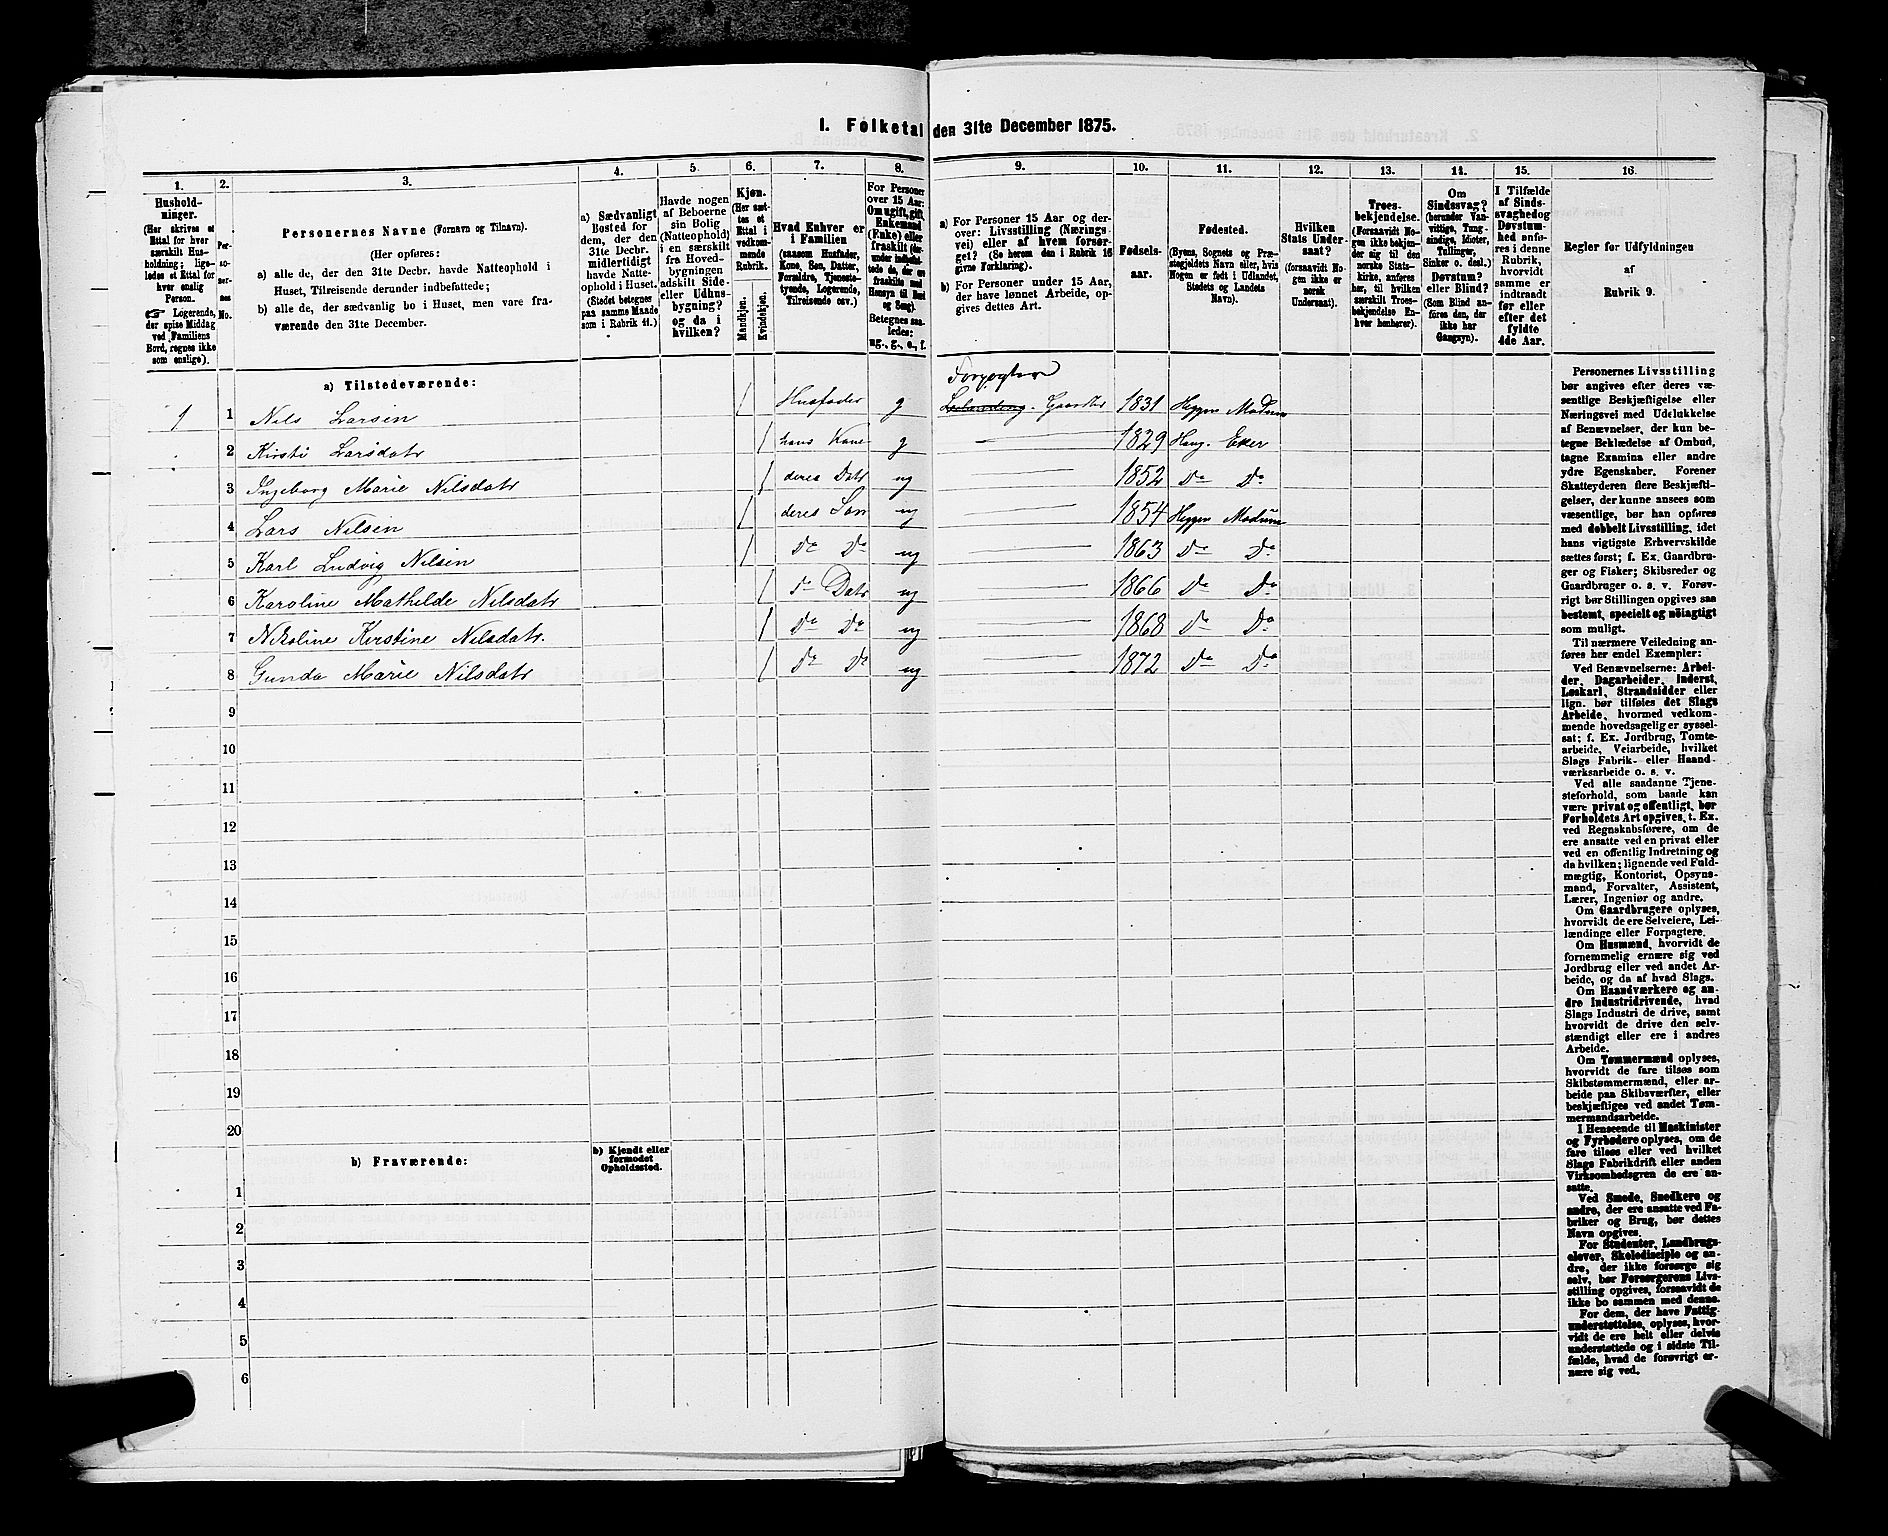 1. Folketal den 31te December 1875.
1. 2. 3. 4. 5. 6. 7. 8. 9. 10. 11. 12. 13. 14. 15. 16.
Hushold-
ninger.
(Her skrives et
Ettal for hver
særskilt Hus-
holdning; lige-
ledes et Ettal for
hver enslig
Person.
☞ Logerende,
der spise Middag
ved Familiens
Bord, regnes ikke
som enslige).
Per-
so-
ner-
nes
No.
Personernes Navne (Fornavn og Tilnavn).
(Her opføres:
a) alle de, der den 31te Decbr. havde Natteophold i
Huset, Tilreisende derunder indbefattede;
b) alle de, der sædvanlig bo i Huset, men vare fra-
værende den 31te December.
a) Sædvanligt
Bosted for
dem, der den
31te Decbr.
midlertidigt
havde Natte-
ophold i Huset.
(Stedet betegnes
paa samme Maade
som i Rubrik 11.)
Havde nogen
af Beboerne
sin Bolig
(Natteophold)
i en særskilt
fra Hoved-
bygningen
adskilt Side-
eller Udhus-
bygning?
og da i
hvilken?
Kjøn.
(Her sæt-
tes et
Ettal i
vedkom-
mende
Rubrik.
Mandkjøn.
Kvindekjøn.
Hvad Enhver er
i Familien
(saasom Husfader,
Kone, Søn, Datter,
Forældre, Tjeneste-
tyende, Logerende,
Tilreisende osv.)
For Personer
over 15 Aar:
Om ugift, gift,
Enkemand
(Enke) eller
fraskilt
Betegnes saa-
ledes:
ug., g., e., f.
a) For Personer 15 Aar og der-
over: Livsstilling (Nærings-
vei) eller af hvem forsør-
get? (Se herom den i Rubrik 16
givne Forklaring).
b) For Personer under 15 Aar,
der have lønnet Arbeide, op-
gives dettes Art.
Fødsels-
aar.
Fødested.
(Byens, Sognets og Præ-
stegjeldets Navn eller, hvis
Nogen er født i Udlandet,
Stedets og Landets
Navn).
Hvilken
Stats Under-
saat?
(forsaavidt No-
gen ikke er
norsk
Undersaat).
Troes-
bekjendelse.
(Forsaavidt No-
gen ikke bekjen-
der sig til den
norske Stats-
kirke, anføres
her, til hvilken
særskilt Troes-
bekjendelse En-
hver henhører).
Om
Sindssvag?
(herunder Van-
vittige, Tung-
sindige, Idioter,
Tullinger,
Sinker o. desl.)
Døvstum?
eller Blind?
(Som Blind an-
føres den, der
ikke har
Gangsyn).
I Tilfælde
af Sinds-
svaghed og
Døvstum-
hed anfø-
res i denne
Rubrik,
hvorvidt
samme er
indtraadt
før eller
efter det
fyldte
4de Aar.
Regler for Udfyldningen
af
Rubrik 9.
a) Tilstedeværende:
Forpagter
1 1 Nils Larsen / Husfader g Gaardbr 1831 Heggen Modum
2 Kirsti Larsdatr / hans Kone g 1829 Haug. Eker
3 Ingeborg Marie Nilsdatr / deres Datr ug 1852 Do Do
4 Lars Nilsen / deres Søn ug 1854 Heggen Modum
5 Karl Ludvig Nilsen / Do Do ug 1863 Do Do
6 Karoline Mathilde Nilsdatr / Do Datr ug 1866 Do Do
7 Nikoline Kirstine Nilsdatr. / Do Do ug 1868 Do Do
8 Gunda Marie Nilsdatr / Do Do ug 1872 Do Do
9
10
11
12
13
14
15
16
17
18
19
20
b) Fraværende:
b) Kjendt eller
formodet
Opholdssted.
1
2
3
4
5
6
Personernes Livsstilling
bør angives efter deres væ-
sentlige Beskjæftigelse eller
Næringsvei med Udelukkelse
af Benævnelser, der kun be-
tegne Beklædelse af Ombud,
tagne Examina eller andre
ydre Egenskaber. Forener
Skatteyderen flere Beskjæfti-
gelser, der kunne ansees som
væsentlige, bør han opføres
med dobbelt Livsstilling, idet
hans vigtigste Erhvervskilde
sættes først; f. Ex. Gaardbru-
ger og Fisker; Skibsreder og
Gaardbruger o. s. v. Forøv-
rigt bør Stillingen opgives saa
bestemt, specielt og nøiagtigt
som muligt.
Til nærmere Veiledning an-
føres her endel Exempler:
Ved Benævnelserne: Arbei-
der, Dagarbeider, Inderst,
Løskarl, Strandsidder eller
lign. bør tilføies det Slags
Arbeide, hvormed vedkom-
mende hovedsagelig er syssel-
sat; f. Ex. Jordbrug, Tomte-
arbeide, Veiarbeide, hvilket
Slags Fabrik- eller Haand-
værksarbeide o. s. v.
Ved alle saadanne Tjene-
steforhold, som baade kan
være privat og offentligt, bør
Forholdets Art opgives, t. Ex.
ved Regnskabsførere, om de
ere ansatte ved en privat eller
ved en offentlig Indretning og
da hvilken; lignende ved Fuld-
mægtig, Kontorist, Opsyns-
mand, Forvalter, Assistent,
Lærer, Ingeniør og andre.
Om Gaardbrugere oplyses,
hvorvidt de ere Selveiere, Lei-
lændinge eller Forpagtere.
Om Husmænd, hvorvidt de
fornemmelig ernære sig ved
Jordbrug eller ved andet Ar-
beide, og da af hvad Slags.
Om Haandværkere og an-
dre Industridrivende, hvad
Slags Industri de drive, samt
hvorvidt de drive den selv-
stændigt eller ere i andres
Arbeide.
Om Tømmermænd oplyses,
hvorvidt de fare tilsøs som
Skibstømmermænd, eller ar-
beide paa Skibsværfter, eller
beskjæftiges ved andet Tøm-
mermandsarbeide.
I Henseende til Maskinister
og Fyrbødere oplyses, om de
fare tilsøs eller ved hvilket
Slags Fabrikdrift eller anden
Virksomhedsgren de ere an-
satte.
Ved Smede, Snedkere og
andre, der ere ansatte ved Fa-
briker og Brug, bør dettes
Navn opgives.
For Studenter, Landbrugs-
elever, Skoledisciple og an-
dre, der ikke forsørge sig
selv, bør Forsørgerens Livs-
stilling opgives, forsaavidt de
ikke bo sammen med denne.
For dem, der have Fattig-
understøttelse, oplyses, hvor-
vidt de ere helt eller delvis
understøttede og i sidste Til-
fælde, hvad de forøvrigt er-
nære sig ved.